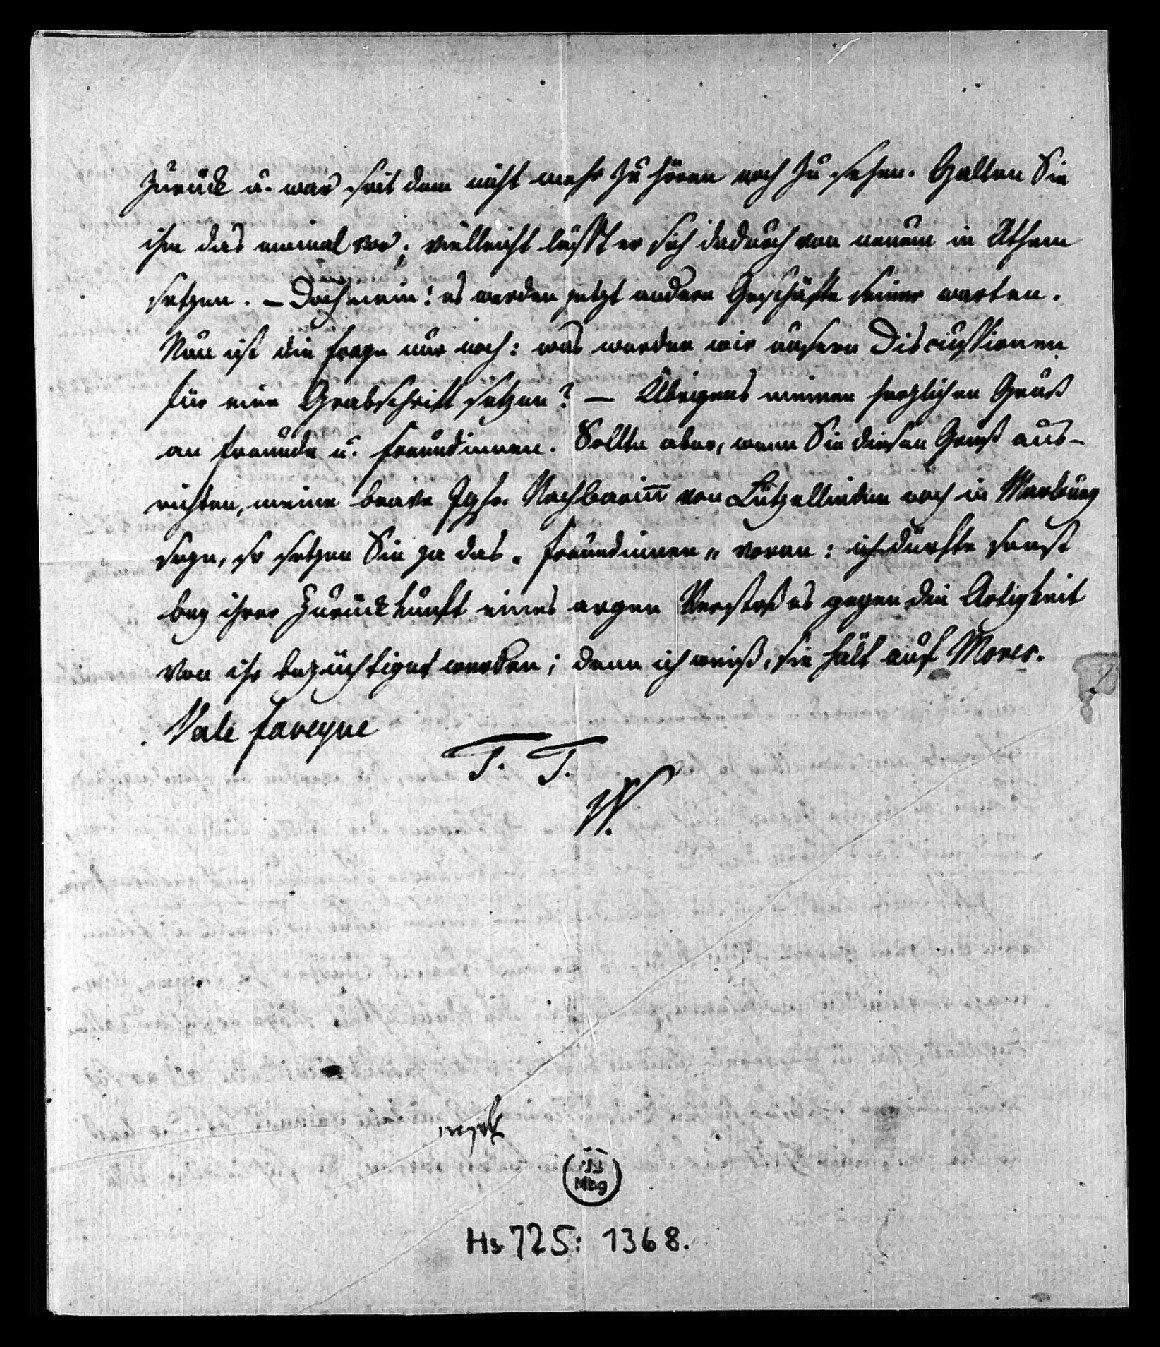 zurück u. war seit dem nicht mehr zu hören noch zu sehen. Halten Sie
ihm das einmal vor; vielleicht läßt er sich dadurch von neuem in Athem
setzen. – Doch nein! es werden jetzt andere Geschäfte seiner warten.
Nun ist die Frage nur noch: was werden wir unsern Discussionen
für eine Grabschrift setzen? – Übrigens meinen herzlichen Gruß
an Freunde u. Freundinnen. Sollte aber, wenn Sie diesen Gruß aus-
richten, meine brave Nachbarinn von Lützellinden noch in Marburg
seyn, so setzen Sie ja das „Freundinnen„ voran: ich dürfte sonst
bey ihrer Zurückkunft eines argen Verstoßes gegen die Artigkeit
von ihr bezüchtiget werden; denn ich weiß, sie hält auf Mores.
Vale faveque
T. T.
W.
UB
Mbg
Hs 725: 1368.